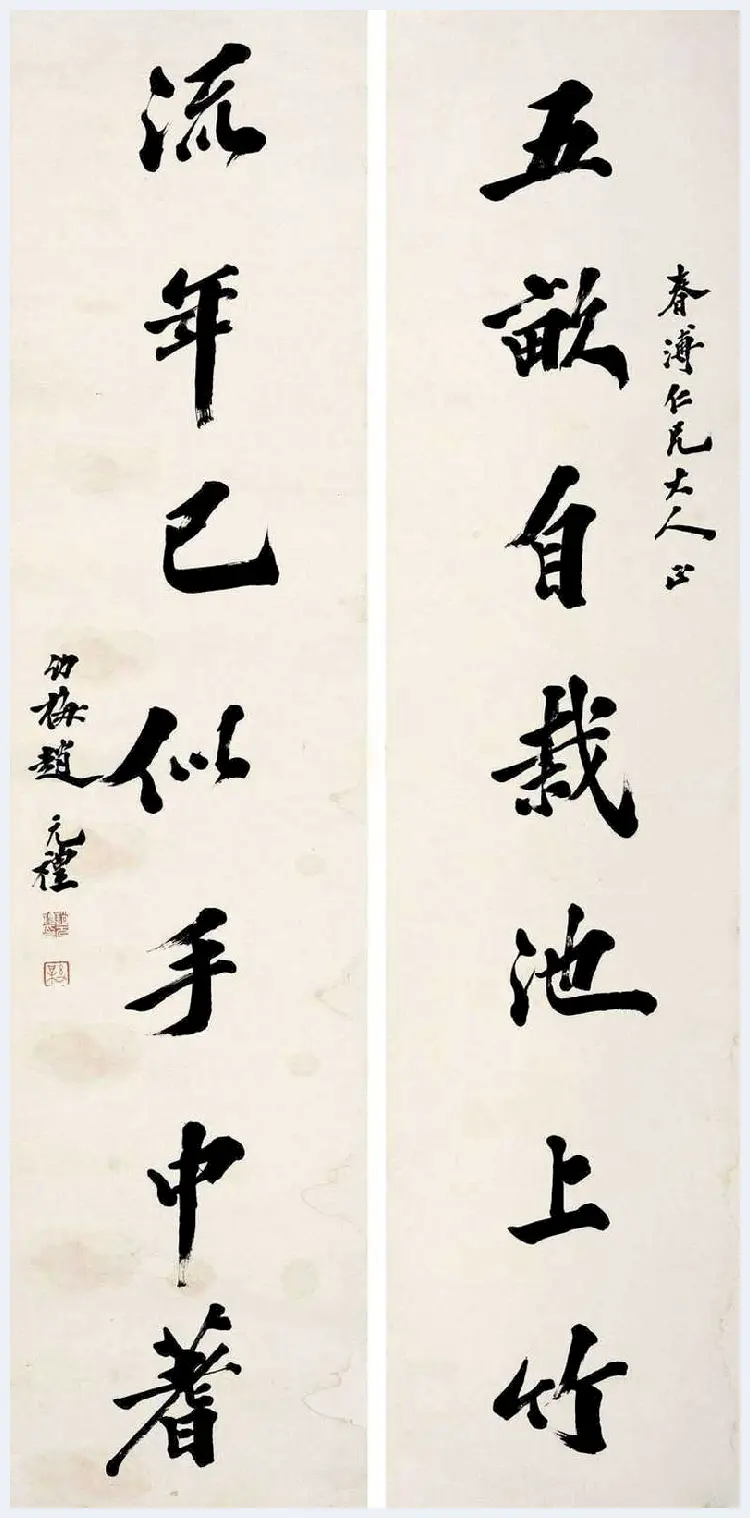 春溥仁兄大人正
五畝自栽池上竹
流年已似手中蓍
幼梅趙元禮